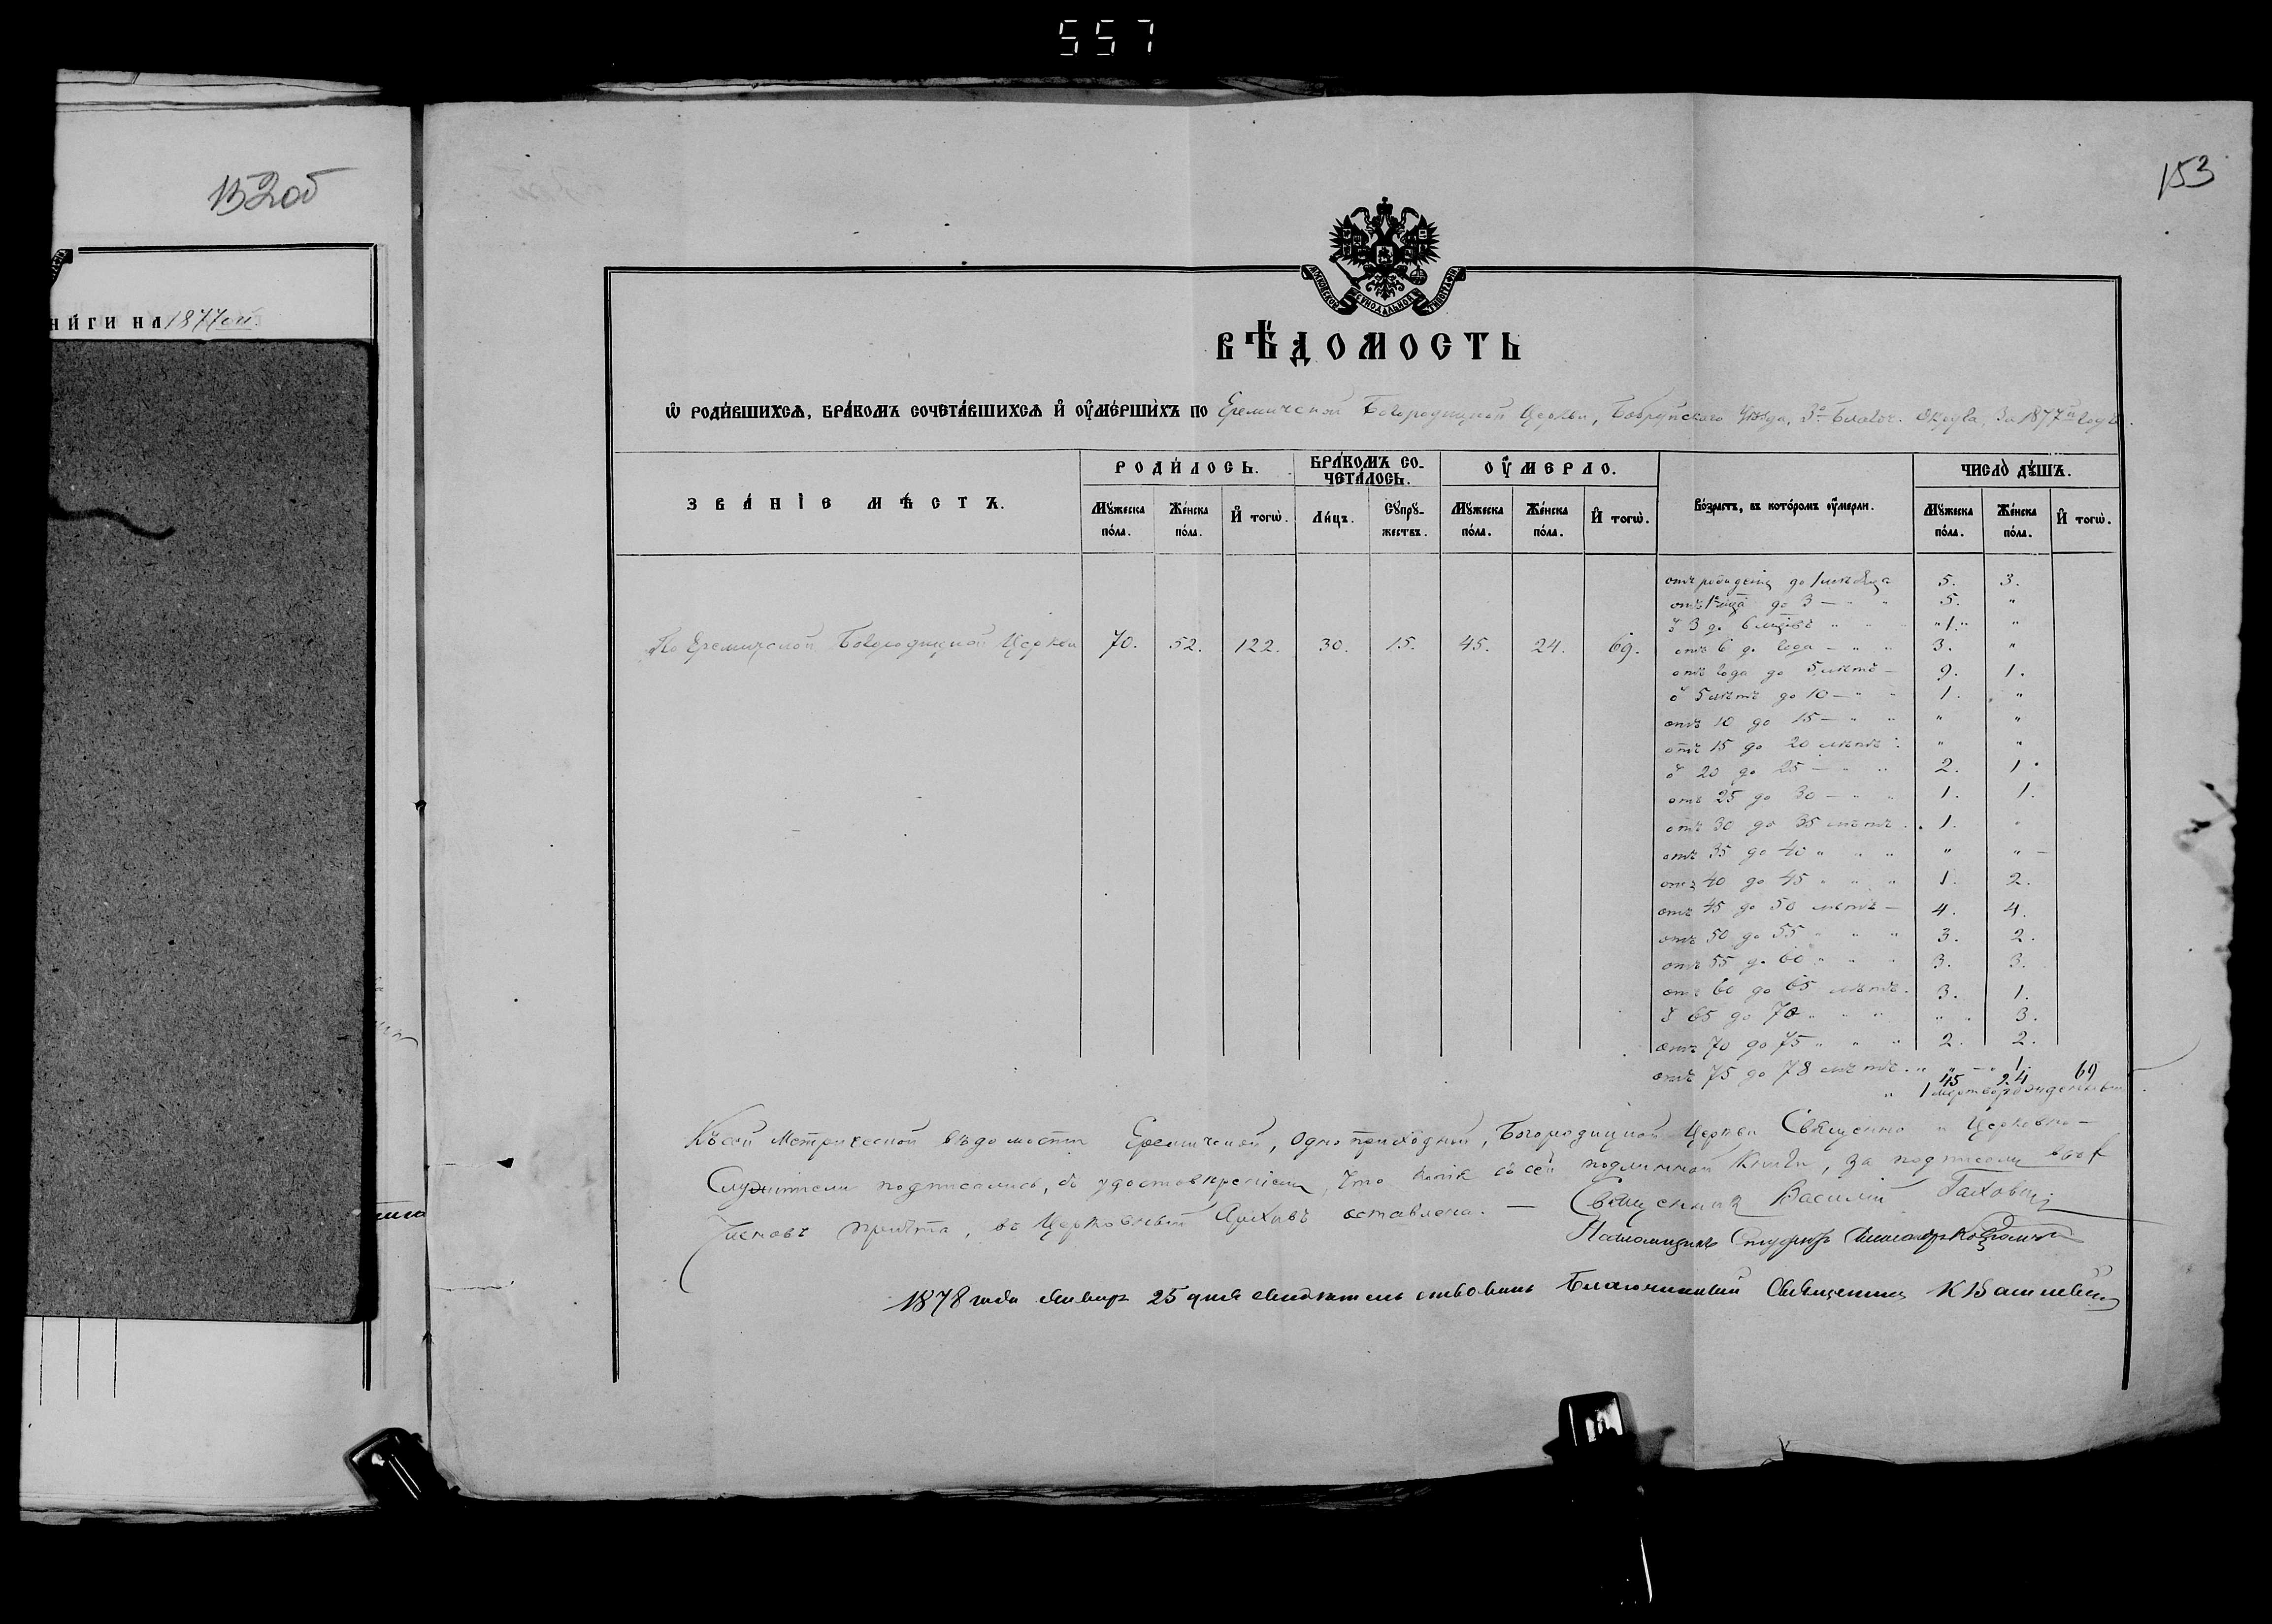 557
152об
ниги на 1877ой.
153
Московской Сѵнодальной Типографіи
ВѢДОМОСТЬ
Ѡ РОДИВШИХСЯ, БРАКОМЪ СОЧЕТАВШИХСЯ И ОУМЕРШИХЪ ПО Еремической Богородицкой Церкви, Бобруйскаго Уѣзда, 3го Благоч. Округа, За 1877й годъ.
ЗВАНІЕ МѢСТЪ.
РОДИЛОСЬ.
БРАКОМЪ СО-
ЧЕТАЛОСЬ.
ОУМЕРЛО.
Возрастъ, въ которомъ оумерли.
ЧИСЛО ДУШЪ.
Мужеска пола.
Женска пола.
И тогѡ.
Лицъ.
Супру-
жествъ.
Мужеска пола.
Женска пола.
И тогѡ.
Мужеска пола.
Женска пола.
И тогѡ.
По Еремической Богородицкой Церкви 70. 52. 122. 30. 15. 45. 24. 69.
отъ рожденія до 1 мѣсяца 5. 3.
отъ 1го до 3 — " " 5. "
3 до 6 " " "1." "
отъ 6 до года — " " 3. "
отъ года до 5 лѣтъ — 9. 1.
5 лѣтъ до 10 — " " 1. "
отъ 10 до 15 — " " " "
отъ 15 до 20 лѣтъ. " "
20 до 25 — " " 2. 1.
отъ 25 до 30 — " " 1. 1.
отъ 30 до 35 лѣтъ. 1. "
отъ 35 до 40 " " " " " —
отъ 40 до 45 " " " 1. 2.
отъ 45 до 50 лѣтъ — 4. 4.
отъ 50 до 55 " " " 3. 2.
отъ 55 до 60 " " " 3. 3.
отъ 60 до 65 лѣтъ. 3. 1.
65 до 70 " " " " 3.
отъ 70 до 75 " " " 2. 2.
отъ 75 до 78 лѣтъ. " " — " 1.
45 24 69
" 1
Къ сей Метрической вѣдомости Еремической, одноприходной, Богородицкой Церкви Священно и Церковно-
Служители подписались, съ удостовѣреніемъ, что копія съ сей подлинной Книги, за подписомъ
Членовъ причта, въ Церковный Архивъ оставлена. — Священникъ Василій
1878 года Января 25 дня свидѣтельствовалъ Благочинный Священникъ К